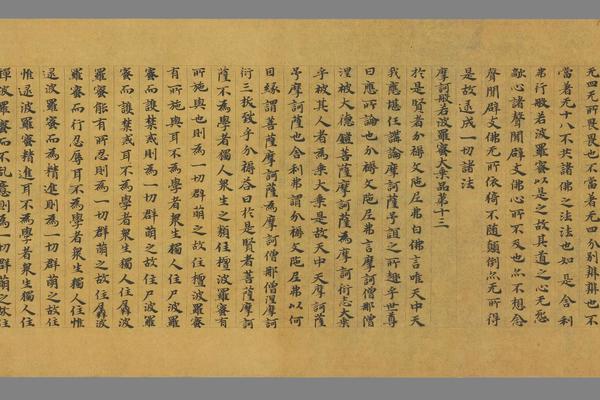 無四無所畏畏也不當著無四分別辯辯也不
當著無十八不共諸佛之法法也如是舍利
弗行般若波羅蜜以是之故其道之心無愁
諸聲聞辟支佛心所不及也亦不想念
聲聞辟支佛無所依倚不隨顛倒亦無所得
是故逮成一切諸法
摩訶般若波羅蜜大乘品第十三
於是賢者分耨文陁尼弗白佛言唯天中天
我應堪任講論摩訶薩号誼之所趣乎世尊
曰應所論也分耨文陁尼弗言摩訶僧那僧
涅被大德鎧菩薩摩訶薩為摩訶衍志大乘
乎被其人者為乘大乘是故天中天摩訶薩
号摩訶薩也舍利弗謂分耨文陁尼弗以何
因緣謂菩薩摩訶薩為摩訶僧那僧涅摩訶
衍三拔致乎分耨答曰於是賢者菩薩摩訶
薩不為學者獨人眾生之類住檀波羅蜜有
所施與也則為一切群萌之故住檀波羅蜜
有所施與耳不為學者眾生獨人住尸波羅
蜜而護禁戒則為一切群萌之故住尸波羅
蜜而護禁戒耳不為學者眾生獨人住羼波
羅蜜能有所忍則為一切群萌之故住羼波
羅蜜而行忍辱耳不為學者眾生獨人住惟
逮波羅蜜而為精進則為一切群萌之故住
惟逮波羅蜜精進耳不為學者眾生獨人住
禪波羅蜜而不亂意則為一切群萌之故住